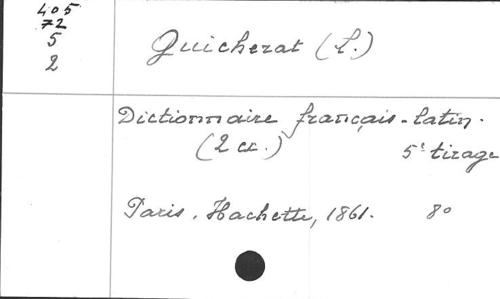 405
72
5
2
Quicherat (L.)
Dictionnaire français-latin.
(2 ex.) 5e tirage
Paris, Hachette, 1861. 8o